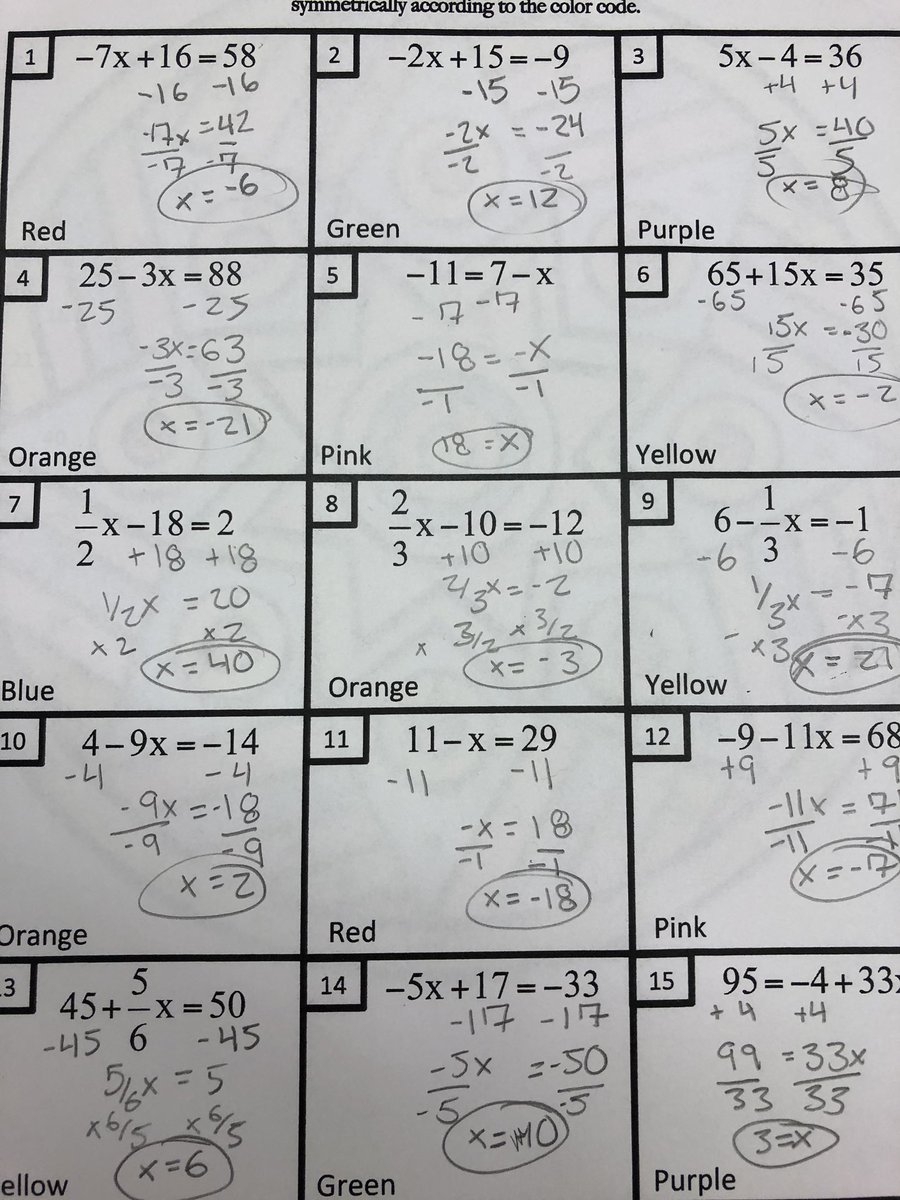 symmetrically according to the color code.
1
-7x+16=58
-16 -16
-7x=42
-7 -7
x=-6
Red
2
-2x+15=-9
-15 -15
-2x = -24
-2 -2
x=12
Green
3
5x-4=36
+4 +4
5x =40
5 5
x=8
Purple
4
25-3x=88
-25 -25
-3x=63
-3 -3
x=-21
Orange
5
-11=7-x
-7 -7
-18=-x
-1 -1
18=x
Pink
6
65+15x=35
-65 -65
15x =-30
15 15
x=-2
Yellow
7
1/2x-18=2
+18 +18
1/2x =20
x2 x2
x=40
Blue
8
2/3x-10=-12
+10 +10
2/3x=-2
x 3/2 x 3/2
x=-3
Orange
9
6-1/3x=-1
-6 -6
1/3x=-7
-x3
- x3
x=21
Yellow
10
4-9x=-14
-4 -4
-9x=-18
-9 -9
x=2
Orange
11
11-x=29
-11 -11
-x=18
-1 -1
x=-18
Red
12
-9-11x=68
+9 +9
-11x=7
-11
x=-17
Pink
3
45+5/6x=50
-45 -45
5/6x=5
x6/5 x6/5
x=6
ellow
14
-5x+17=-33
-17 -17
-5x =-50
-5 -5
x=10
Green
15
95=-4+33x
+4 +4
99=33x
33 33
3=x
Purple